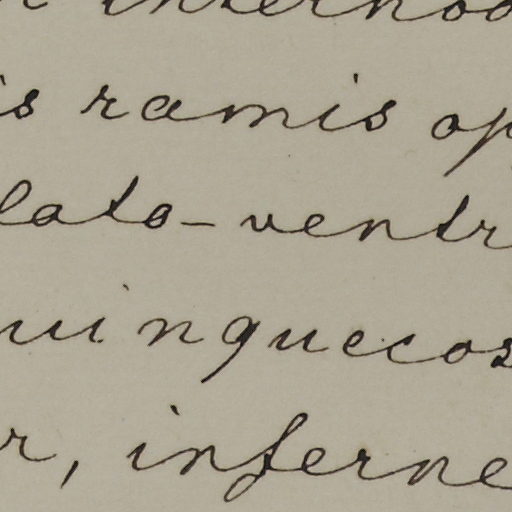 internod
is ramis op
lato-ventr
uinquecos
r, inferne